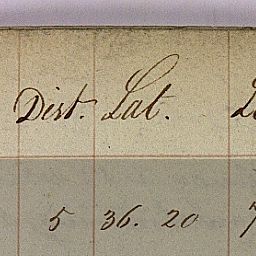 Dist. Lat.
5 36. 20